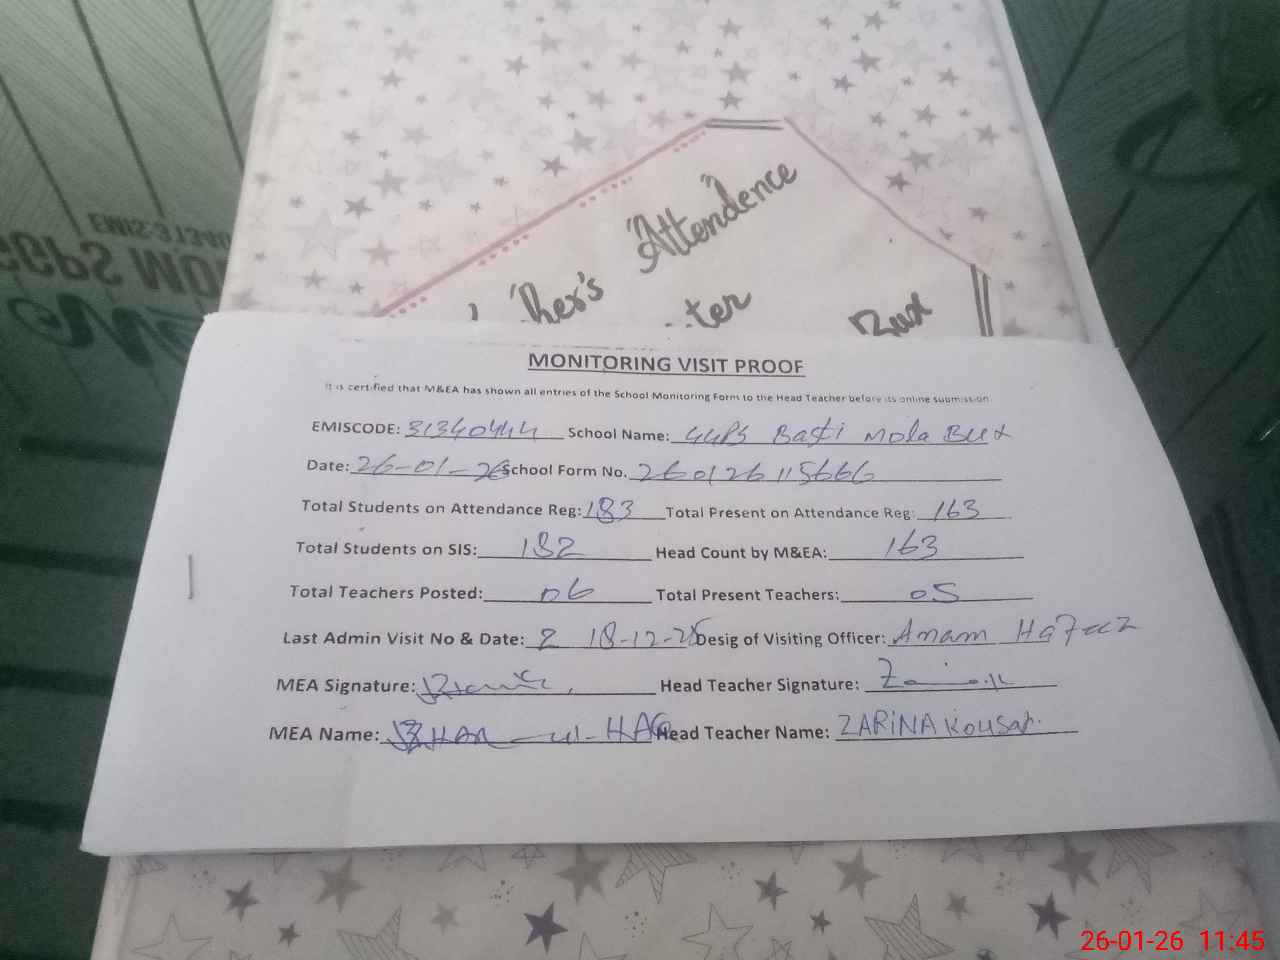 EMIS:31340
GGPS MOL
"Attendence
ther's
ter
Bux
MONITORING VISIT PROOF
It is certified that M&EA has shown all entries of the School Monitoring Form to the Head Teacher before its online submission.
EMISCODE: 31340444 School Name: GGPS Basti Mola Bux
Date: 26-01-26 School Form No. 260126115666
Total Students on Attendance Reg: 183 Total Present on Attendance Reg: 163
Total Students on SIS: 182 Head Count by M&EA: 163
Total Teachers Posted: 06 Total Present Teachers: 05
Last Admin Visit No & Date: 2 18-12-25 Desig of Visiting Officer: Anam Hafeez
MEA Signature: Head Teacher Signature:
MEA Name: ul-HAQ Head Teacher Name: ZARINA Kousar.
26-01-26 11:45